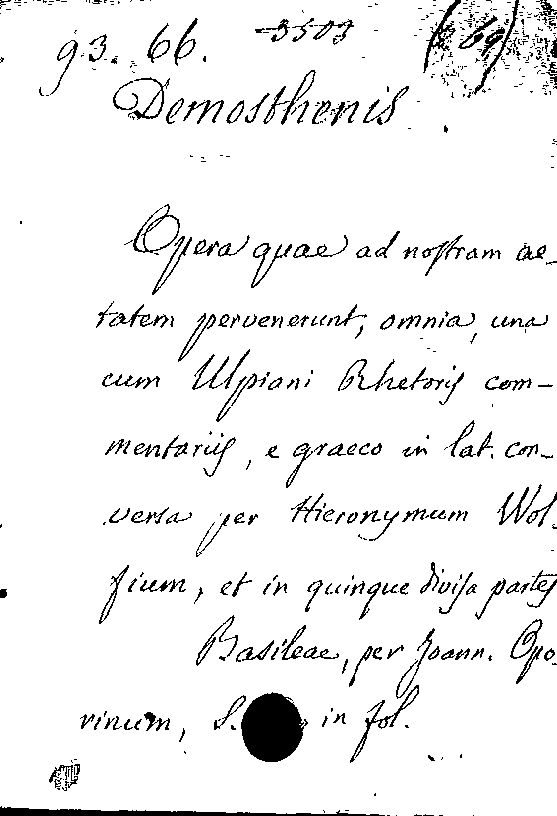 93. 66. 3503 (69)
Demosthenis
Opera quae ad nostram ae-
tatem pervenerunt, omnia, una
cum Ulpiani Rhetoris com-
mentariis, e graeco in lat. con-
versa per Hieronymum Wol-
fium, et in quinque divisa partes
Basileae, per Joann. Opo-
rinum, S. in fol.